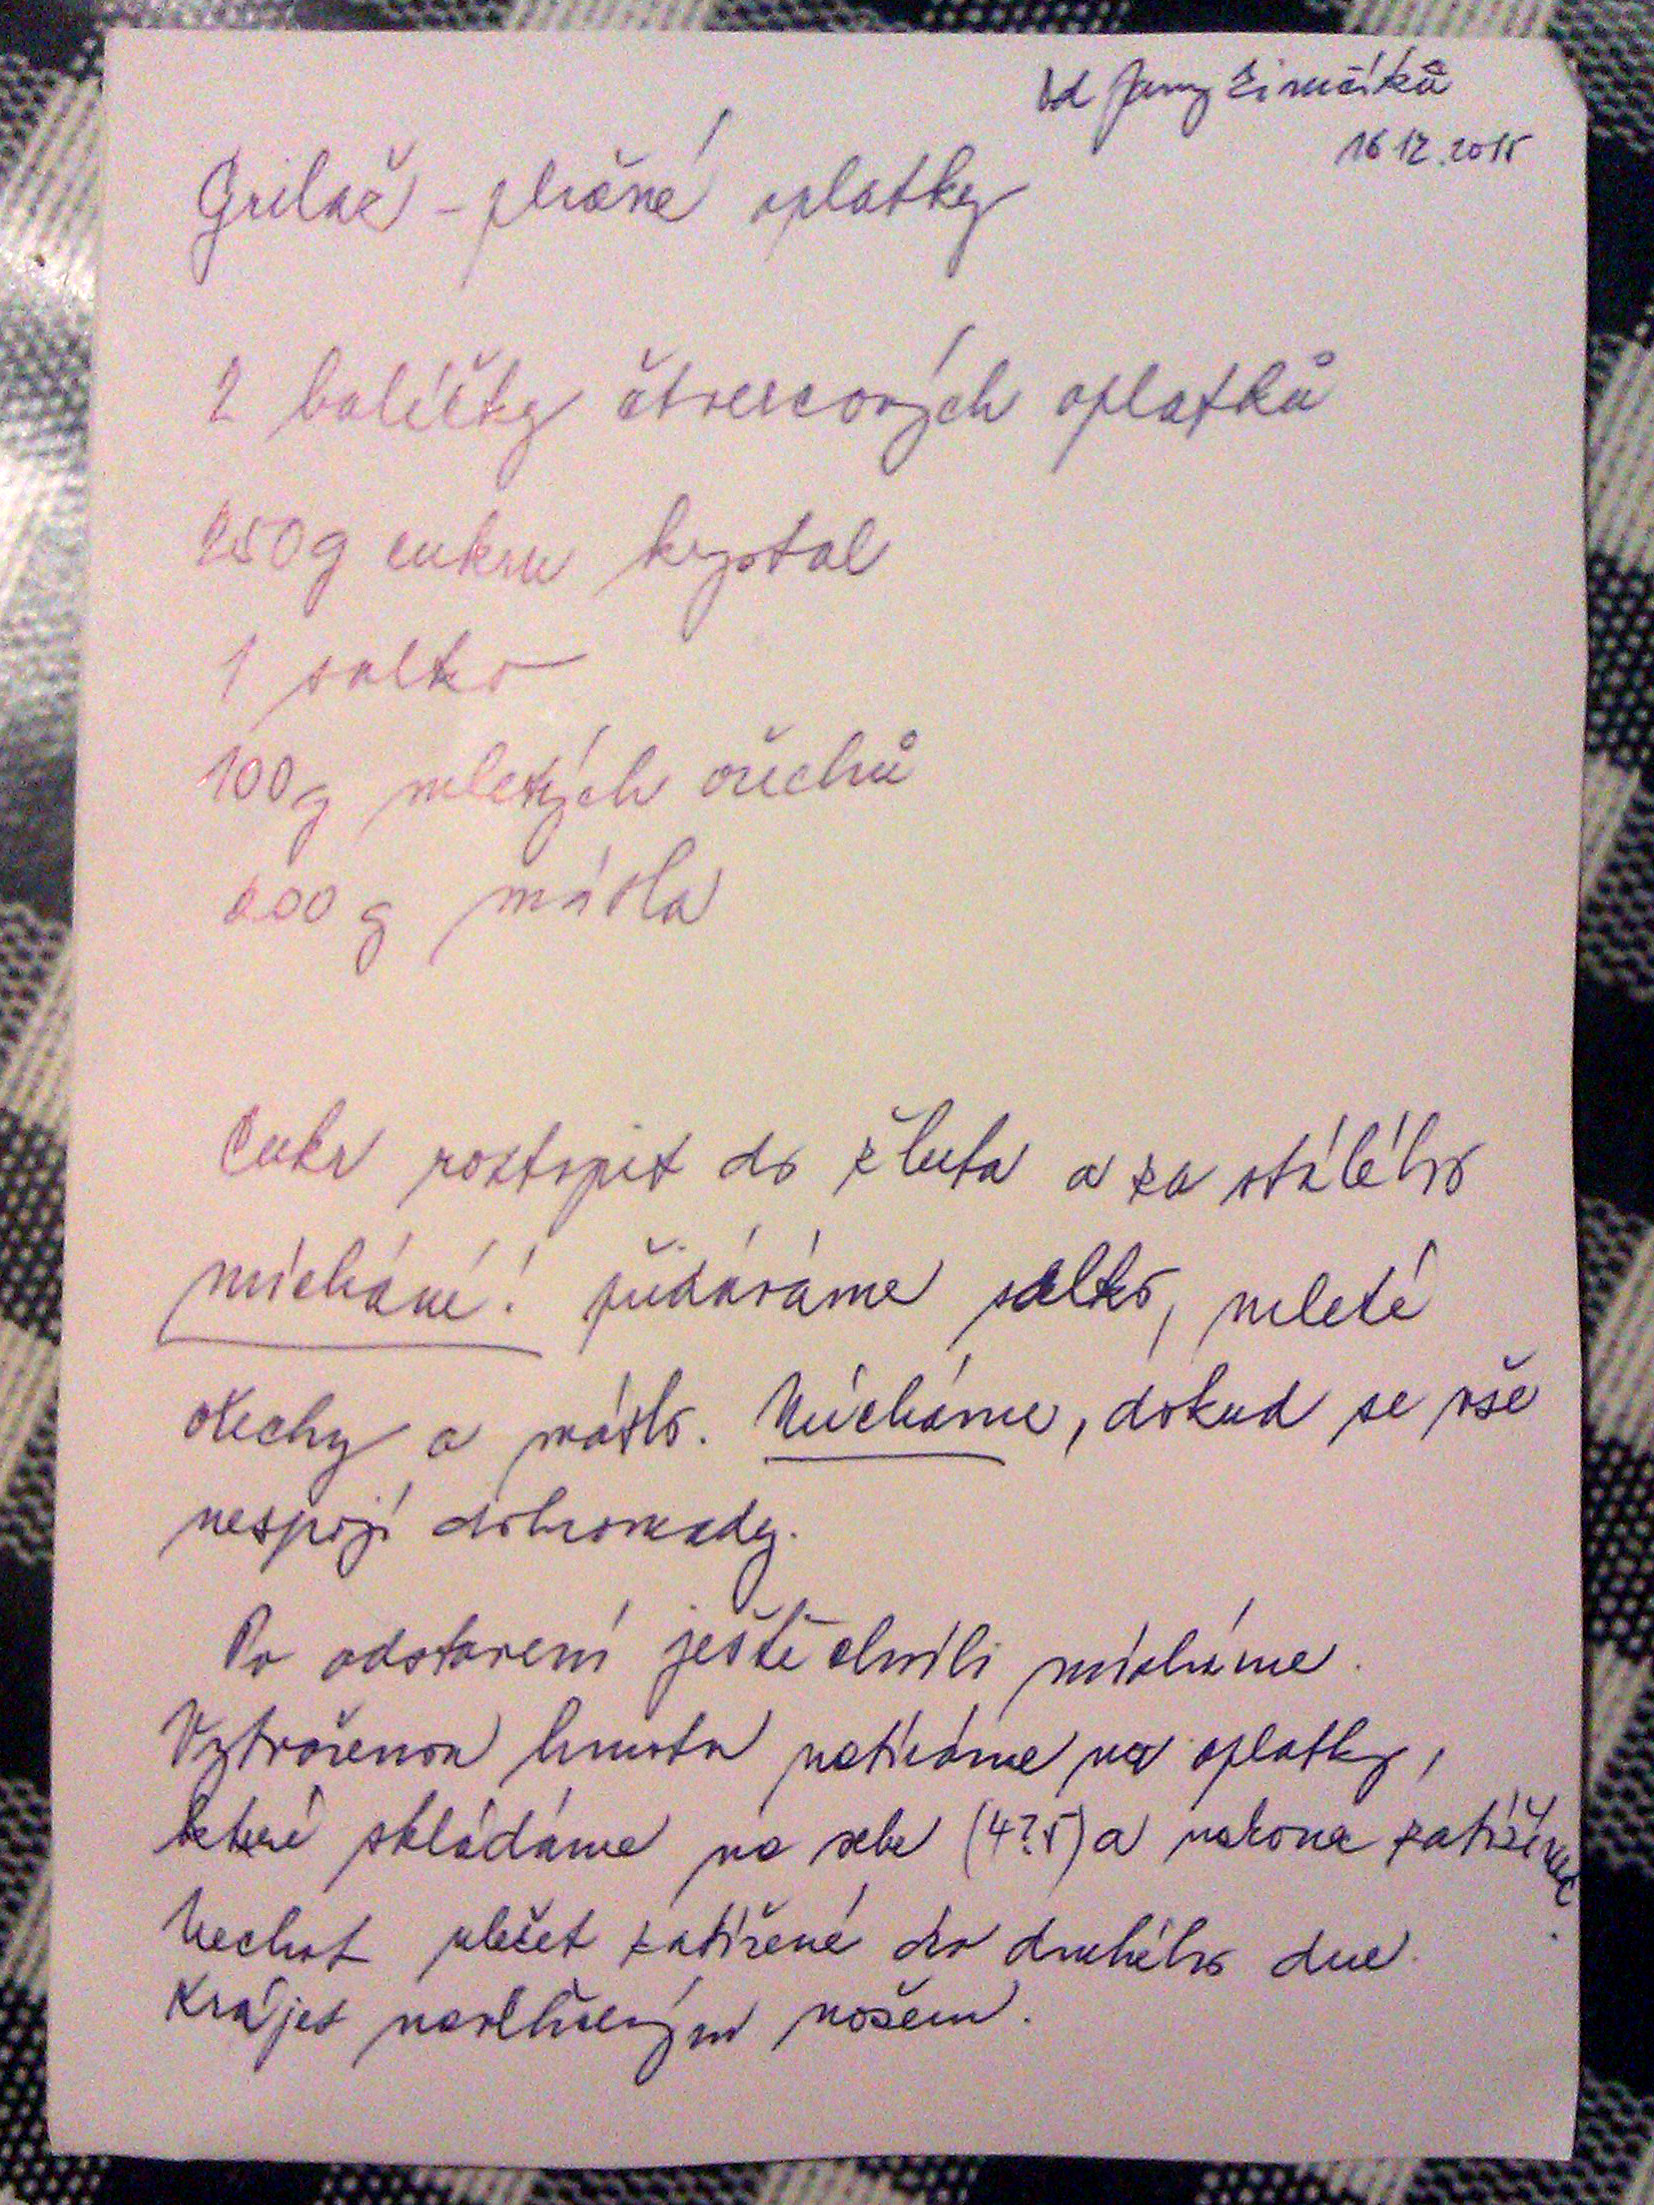 od Jany Šimčíků
16 12. 2015
Grilač - plněné oplatky
2 balíčky čtvercových oplatků
250g cukru krystal
1 salko
100g mletých ořechů
200 g másla
Cukr roztopit do žluta a za stálého
míchání! přidáváme salko, mleté
ořechy a máslo. Mícháme, dokud se vše
nespojí dohromady.
Po odstavení ještě chvíli mícháme.
Vztraženou hmotu natíráme na oplatky,
které skládáme na sebe (4?5) a nakonec zatížíme.
Nechat uležet zatížené do druhého dne.
Krájet navlhčeným nožem.